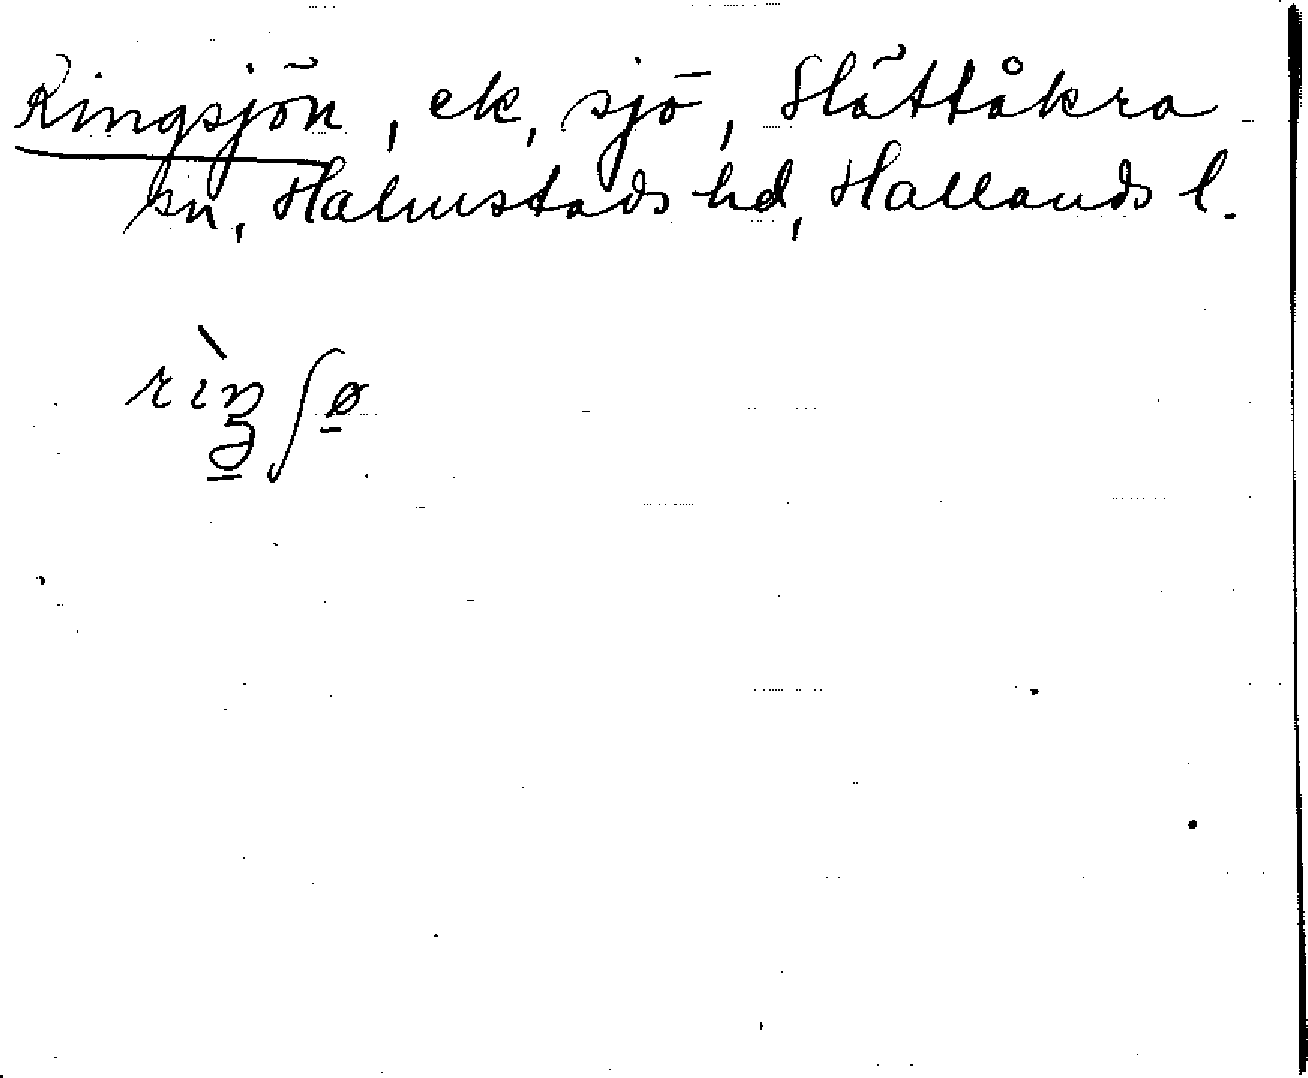 Ringsjön, ek, sjö, Slättåkra
sn, Halmstads hd, Hallands l.
rìŋ̳ʃø̲